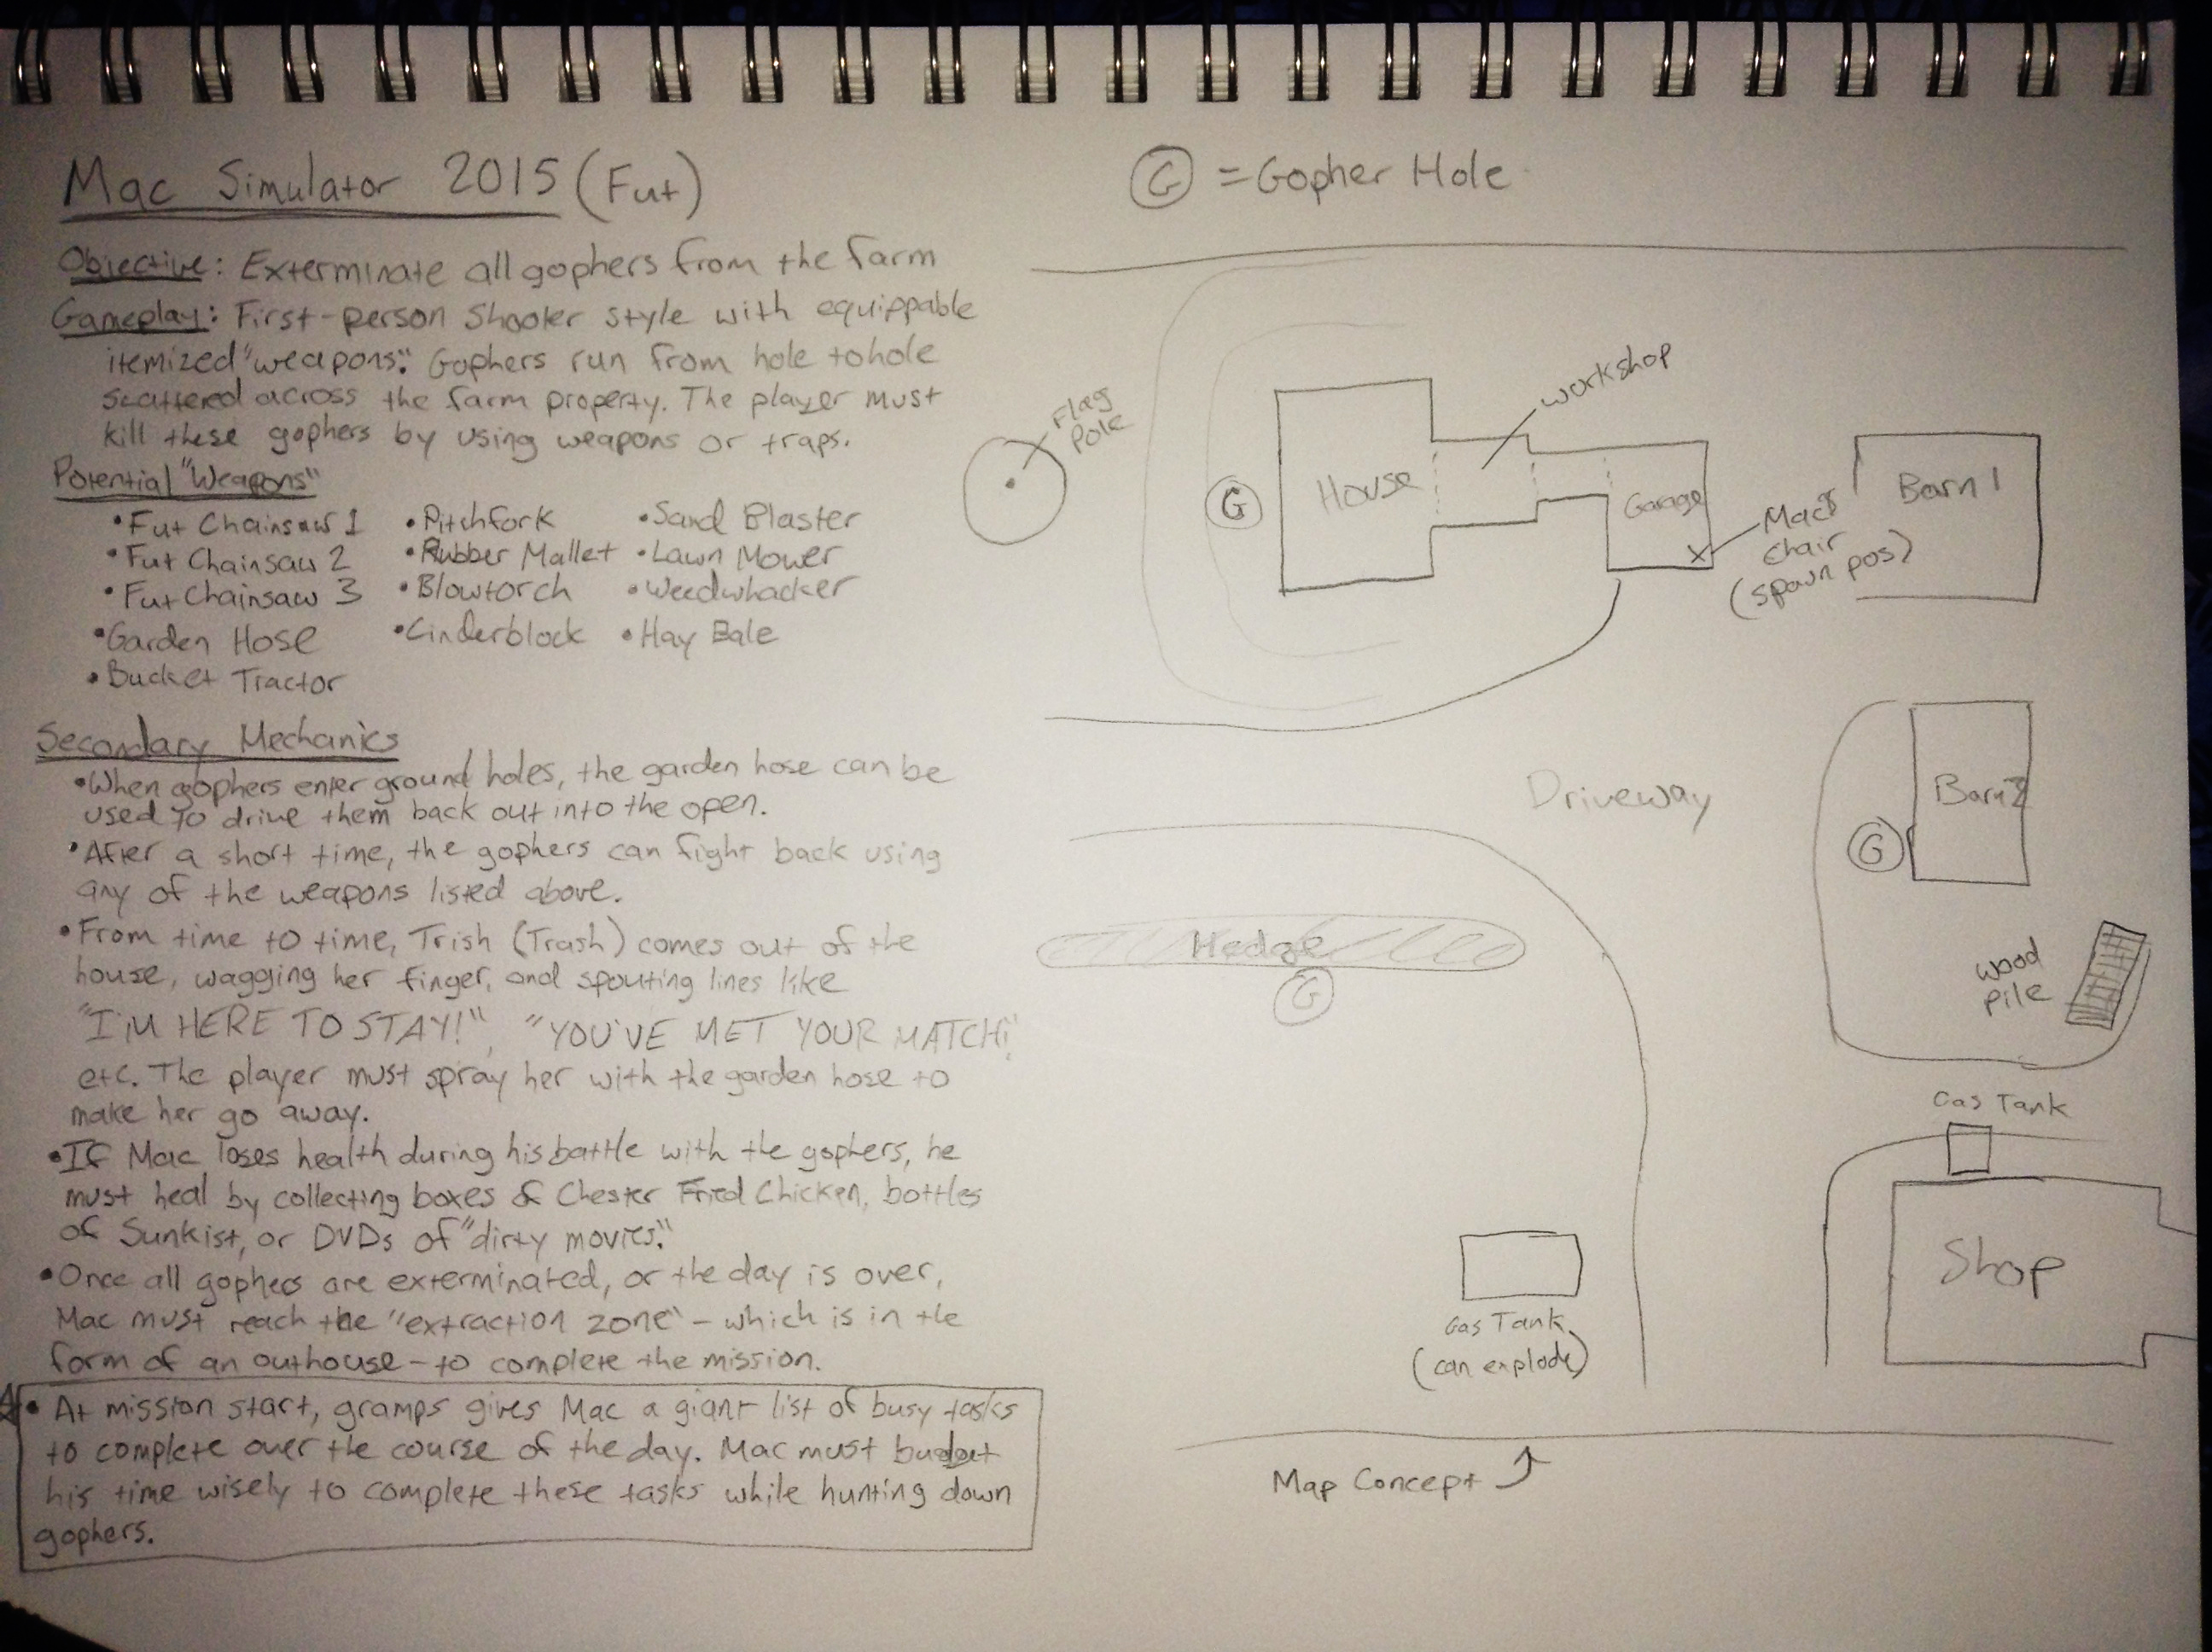 Mac Simulator 2015 (Fut)
Objective: Exterminate all gophers from the farm
Gameplay: First-person Shooter style with equippable
itemized "weapons". Gophers run from hole to hole
scattered across the farm property. The player must
kill these gophers by using weapons or traps.
Potential "Weapons"
• Fut Chainsaw 1 • Pitchfork • Sand Blaster
• Fut Chainsaw 2 • Rubber Mallet • Lawn Mower
• Fut Chainsaw 3 • Blowtorch • Weedwhacker
• Garden Hose • Cinderblock • Hay Bale
• Bucket Tractor
Secondary Mechanics
• When gophers enter ground holes, the garden hose can be
used to drive them back out into the open.
• After a short time, the gophers can fight back using
any of the weapons listed above.
• From time to time, Trish (Trash) comes out of the
house, wagging her finger, and spouting lines like
"I'M HERE TO STAY!", "YOU'VE MET YOUR MATCH!"
etc. The player must spray her with the garden hose to
make her go away.
• If Mac loses health during his battle with the gophers, he
must heal by collecting boxes of Chester Fried Chicken, bottles
of Sunkist, or DVDs of "dirty movies."
• Once all gophers are exterminated, or the day is over,
Mac must reach the "extraction zone" - which is in the
form of an outhouse - to complete the mission.
• At mission start, gramps gives Mac a giant list of busy tasks
to complete over the course of the day. Mac must budget
his time wisely to complete these tasks while hunting down
gophers.
G = Gopher Hole
Workshop
Flag
Pole
G
House
Garage
Mac's
Chair
(spawn pos)
Barn 1
Driveway
Barn 2
G
Hedge
G
Wood
Pile
Gas Tank
Shop
Gas Tank
(can explode)
Map Concept